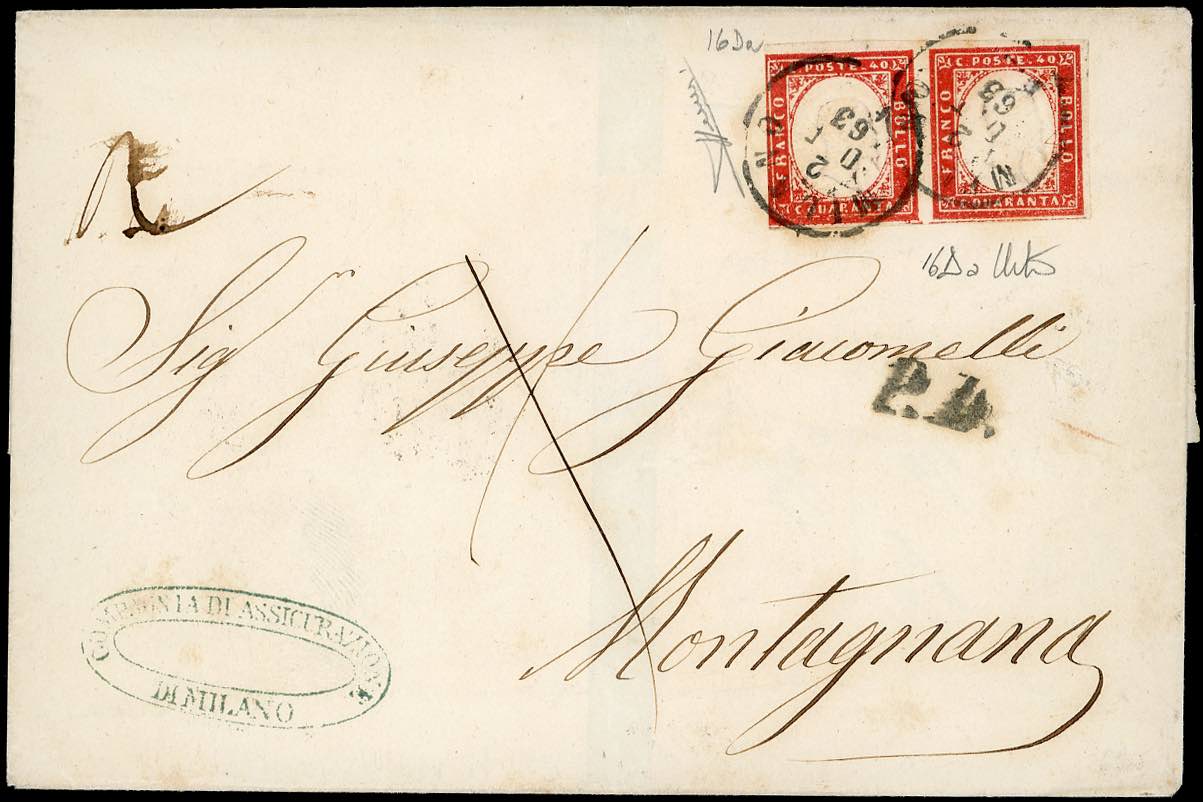 16Da
C. POSTE. 40
FRANCO
BOLLO
C. QUARANTA
C. POSTE. 40
FRANCO
BOLLO
C. QUARANTA
MILANO
63
63
16Da
Sig.r Giuseppe Giacomelli
P.D.
Montagnana
COMPAGNIA DI ASSICURAZIONE
DI MILANO